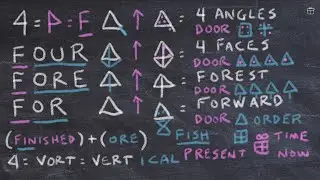 4 = P = F = 4 ANGLES
DOOR
FOUR = 4 FACES
DOOR
FORE = FOREST
FOR = FORWARD
DOOR ORDER
(FINISHED) + (ORE) FISH TIME
4 = VORT = VERT ICAL PRESENT NOW